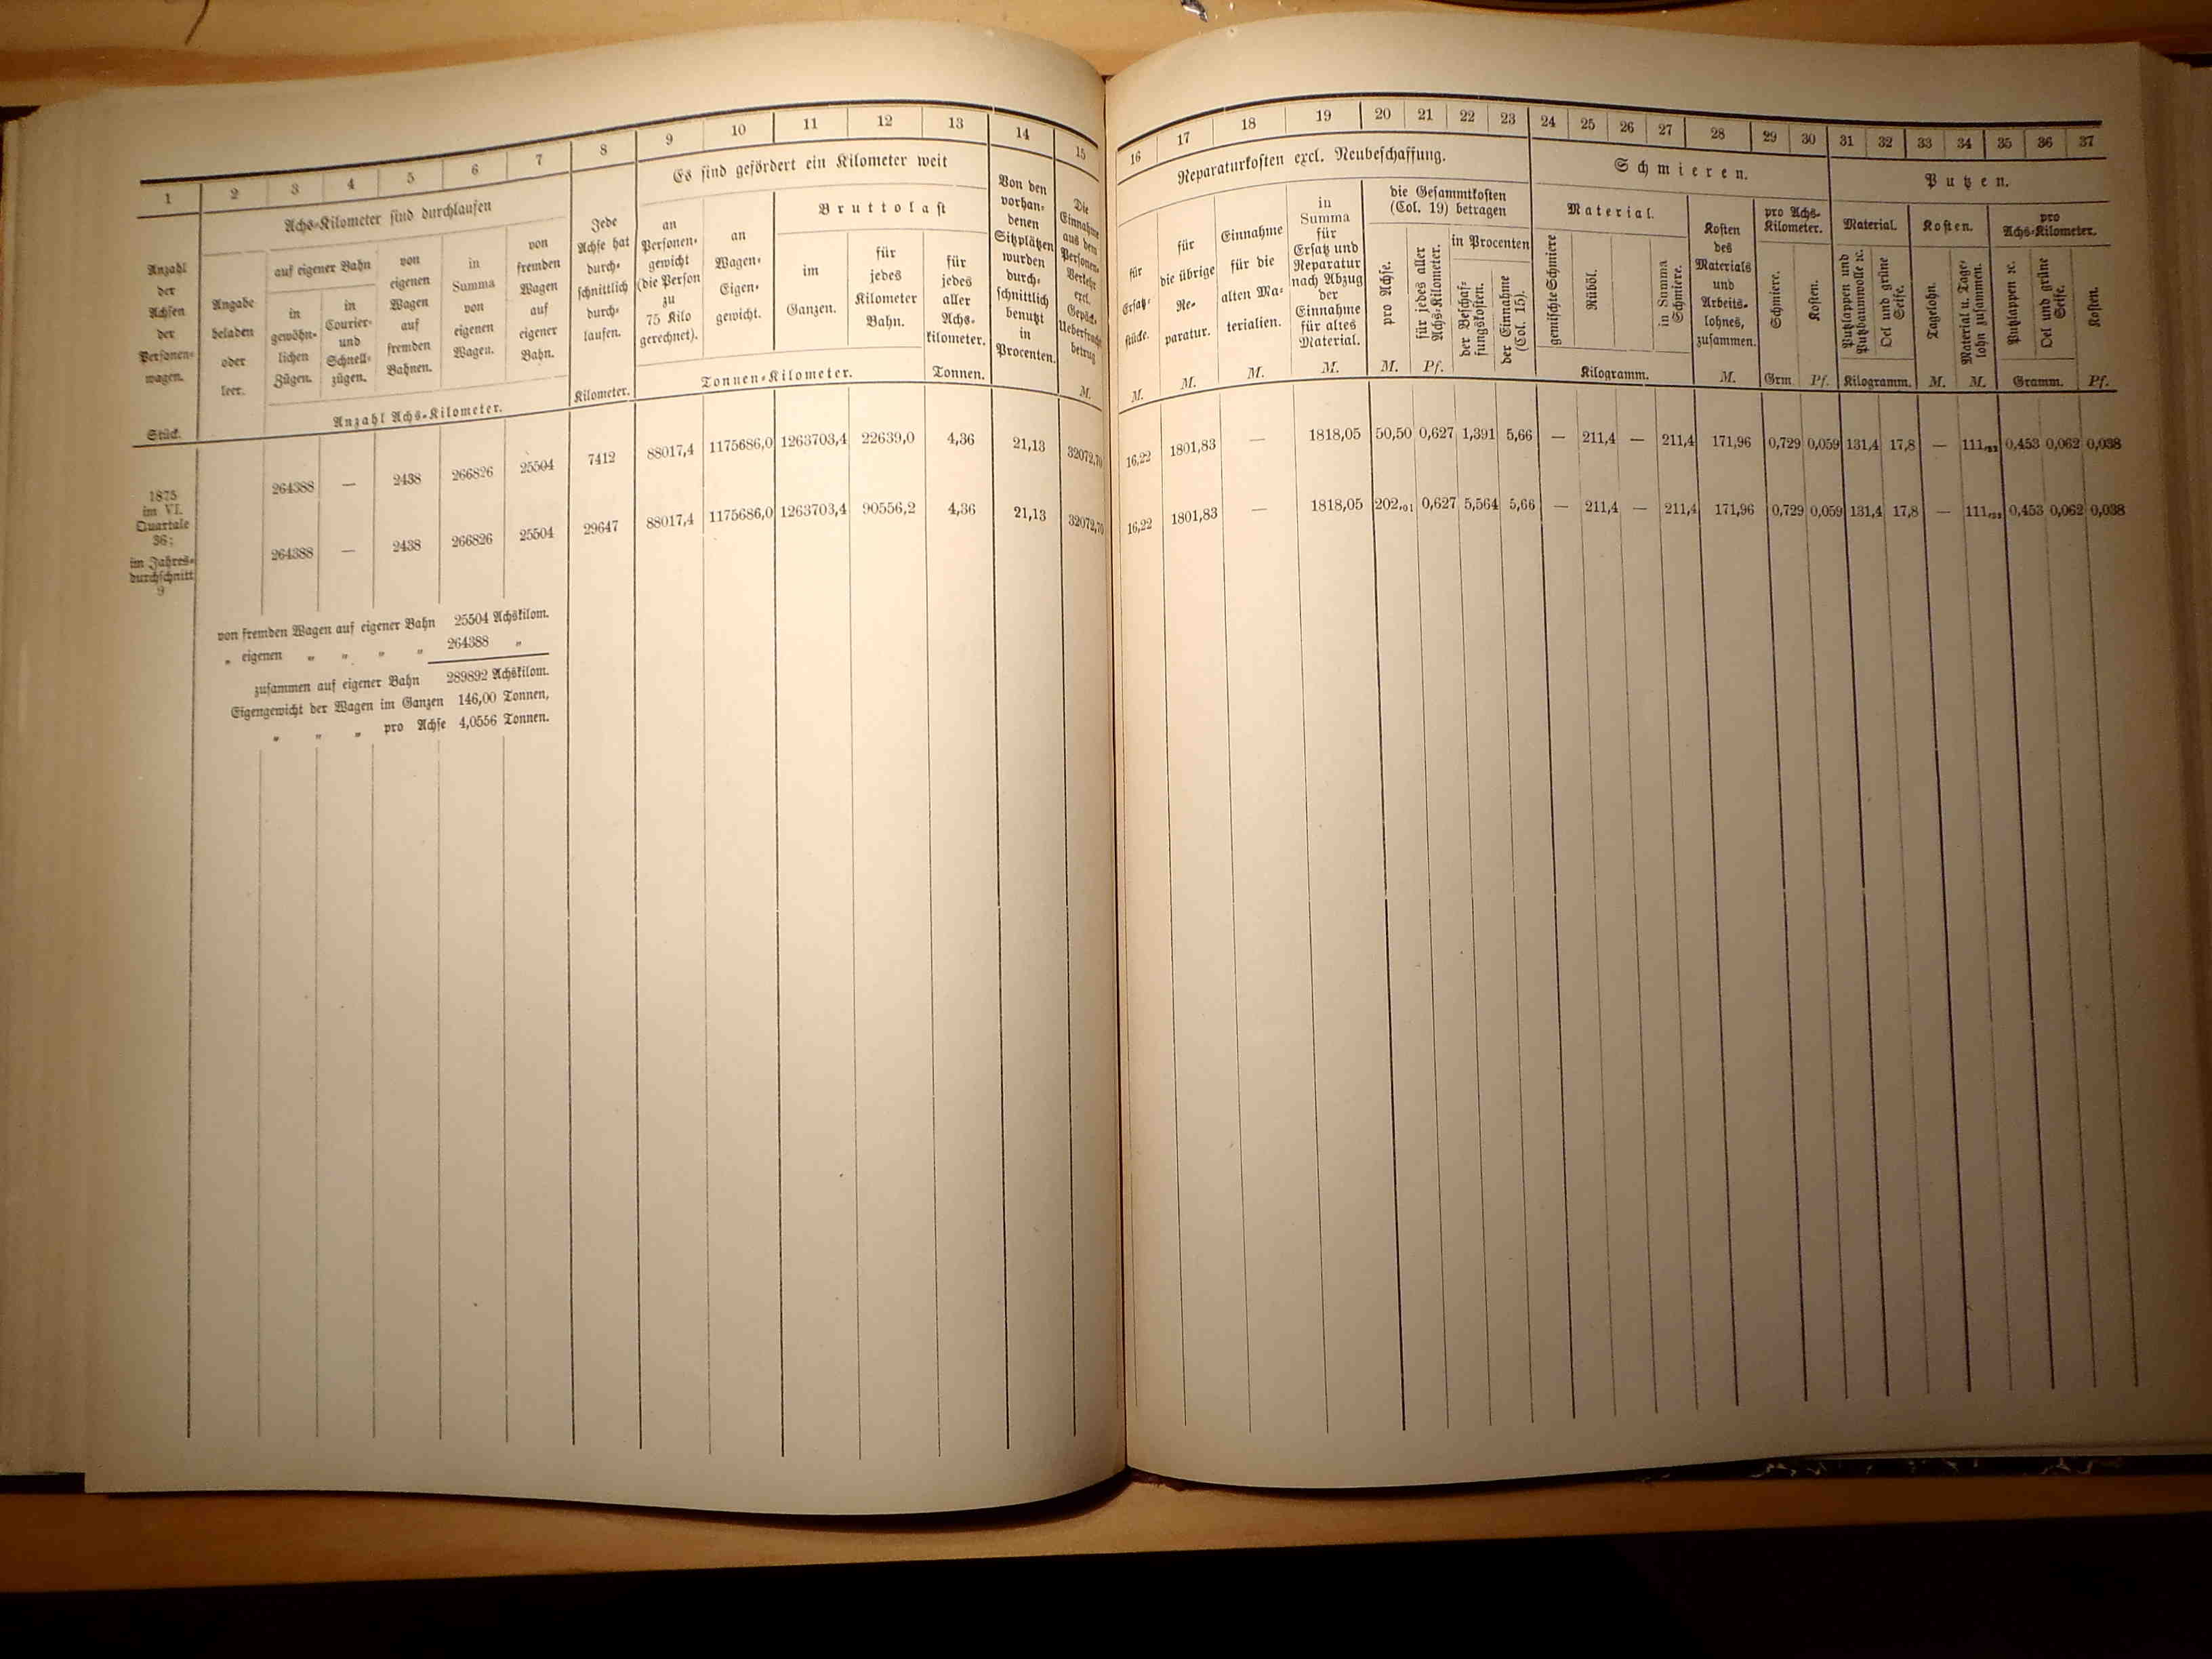 1 2 3 4 5 6 7 8 9 10 11 12 13 14 15
Anzahl
der
Achsen
der
Personen-
wagen.
Stück.
Achs-Kilometer sind durchlaufen
Angabe
beladen
oder
leer.
auf eigener Bahn
in
gewöhn-
lichen
Zügen.
in
Courier-
und
Schnell-
zügen.
von
eigenen
Wagen
auf
fremden
Bahnen.
in
Summa
von
eigenen
Wagen.
von
fremden
Wagen
auf
eigener
Bahn.
Anzahl Achs-Kilometer.
Jede
Achse hat
durch-
schnittlich
durch-
laufen.
Kilometer.
Es sind gefördert ein Kilometer weit
an
Personen-
gewicht
(die Person
zu
75 Kilo
gerechnet).
an
Wagen-
Eigen-
gewicht.
Bruttolast
im
Ganzen.
für
jedes
Kilometer
Bahn.
für
jedes
aller
Achs-
kilometer.
Tonnen-Kilometer.
Tonnen.
Von den
vorhan-
denen
Sitzplätzen
wurden
durch-
schnittlich
benutzt
in
Procenten.
Die
Einnahme
aus dem
Personen-
Verkehr
excl.
Gepäck-
Ueberfracht
betrug
M.
1875
im VI.
Quartale
36;
264388 — 2438 266826 25504 7412 88017,4 1175686,0 1263703,4 22639,0 4,36 21,13 32072,70
im Jahres-
durchschnitt
9
264388 — 2438 266826 25504 29647 88017,4 1175686,0 1263703,4 90556,2 4,36 21,13 32072,70
von fremden Wagen auf eigener Bahn 25504 Achskilom.
„ eigenen „ „ „ „ 264388 „
zusammen auf eigener Bahn 289892 Achskilom.
Eigengewicht der Wagen im Ganzen 146,00 Tonnen,
„ „ „ pro Achse 4,0556 Tonnen.
16 17 18 19 20 21 22 23 24 25 26 27 28 29 30 31 32 33 34 35 36 37
Reparaturkosten excl. Neubeschaffung.
für
Ersatz-
stücke.
M.
für
die übrige
Re-
paratur.
M.
Einnahme
für die
alten Ma-
terialien.
M.
in
Summa
für
Ersatz und
Reparatur
nach Abzug
der
Einnahme
für altes
Material.
M.
die Gesammtkosten
(Col. 19) betragen
pro Achse.
M.
für jedes aller
Achs-Kilometer.
Pf.
in Procenten
der Beschaf-
fungskosten.
der Einnahme
(Col. 15).
Schmieren.
Material.
gemischte Schmiere
Rüböl.
in Summa
Schmiere.
Kilogramm.
Kosten
des
Materials
und
Arbeits-
lohnes,
zusammen.
M.
pro Achs-
Kilometer.
Schmiere.
Grm.
Kosten.
Pf.
Putzen.
Material.
Putzlappen und
Putzbaumwolle ꝛc.
Oel und grüne
Seife.
Kilogramm.
Kosten.
Tagelohn.
M.
Material u. Tage-
lohn zusammen.
M.
pro
Achs-Kilometer.
Putzlappen ꝛc.
Oel und grüne
Seife.
Gramm.
Kosten.
Pf.
16,22 1801,83 — 1818,05 50,50 0,627 1,391 5,66 — 211,4 — 211,4 171,96 0,729 0,059 131,4 17,8 — 0,453 0,062 0,038
16,22 1801,83 — 1818,05 202,01 0,627 5,564 5,66 — 211,4 — 211,4 171,96 0,729 0,059 131,4 17,8 — 0,453 0,062 0,038